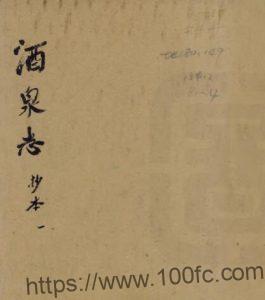 酒泉志 抄本 一
https://www.100fc.com